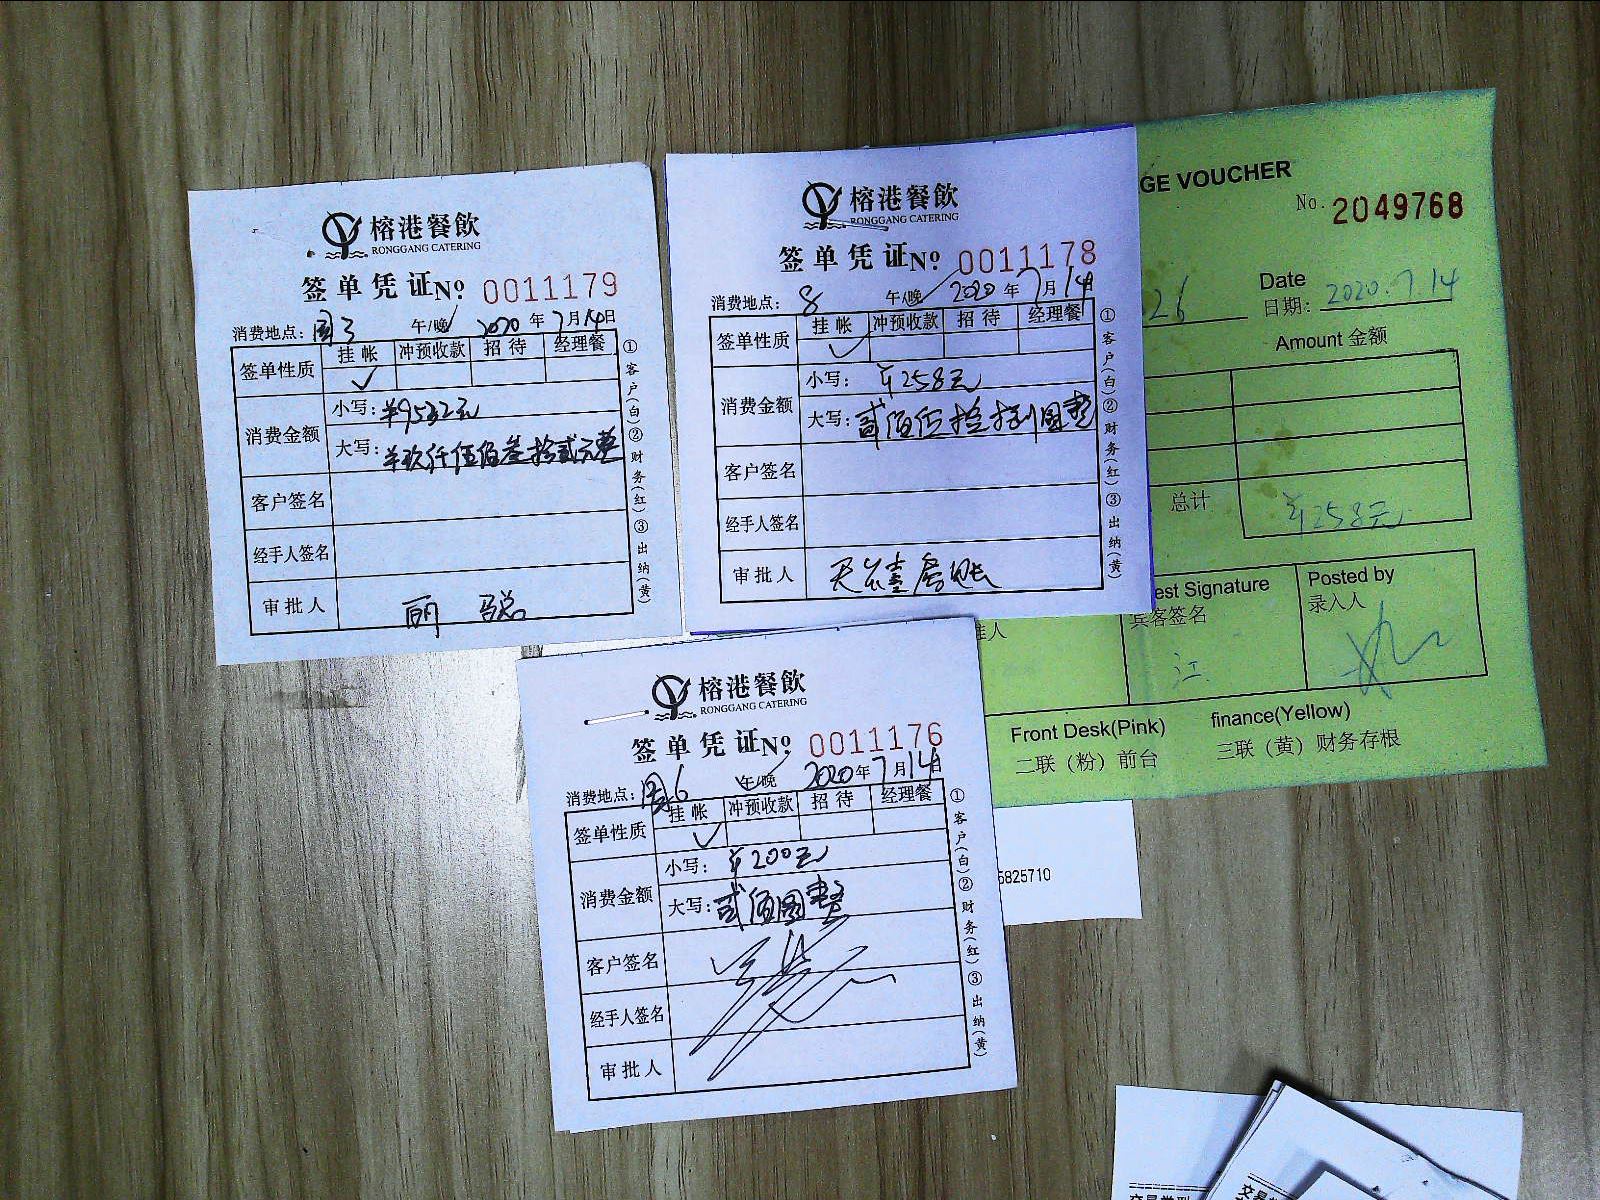 榕港餐飲
RONGGANG CATERING
签单凭证No 0011179
消费地点: 园3 午/晚 2020年7月14日
签单性质 挂帐 冲预收款 招待 经理餐
消费金额
小写: ¥9532元
大写: 玖仟伍佰叁拾贰元整
客户签名
经手人签名
审批人
①客户(白)②财务(红)③出纳(黄)
榕港餐飲
RONGGANG CATERING
签单凭证No 0011178
消费地点: 8 午/晚 2020年7月14
签单性质 挂帐 冲预收款 招待 经理餐
消费金额
小写: ¥258元
大写: 贰佰伍拾捌圆整
客户签名
经手人签名
审批人
①客户(白)②财务(红)③出纳(黄)
榕港餐飲
RONGGANG CATERING
签单凭证No 0011176
消费地点: 园6 午/晚 2020年7月14日
签单性质 挂帐 冲预收款 招待 经理餐
消费金额
小写: ¥200元
大写: 贰佰圆整
客户签名
经手人签名
审批人
①客户(白)②财务(红)③出纳(黄)
GE VOUCHER
No. 2049768
26
Date
日期: 2020.7.14
Amount 金额
总计 ¥258元
est Signature
宾客签名
江
Posted by
录入人
准人
Front Desk(Pink) finance(Yellow)
二联（粉）前台 三联（黄）财务存根
5825710